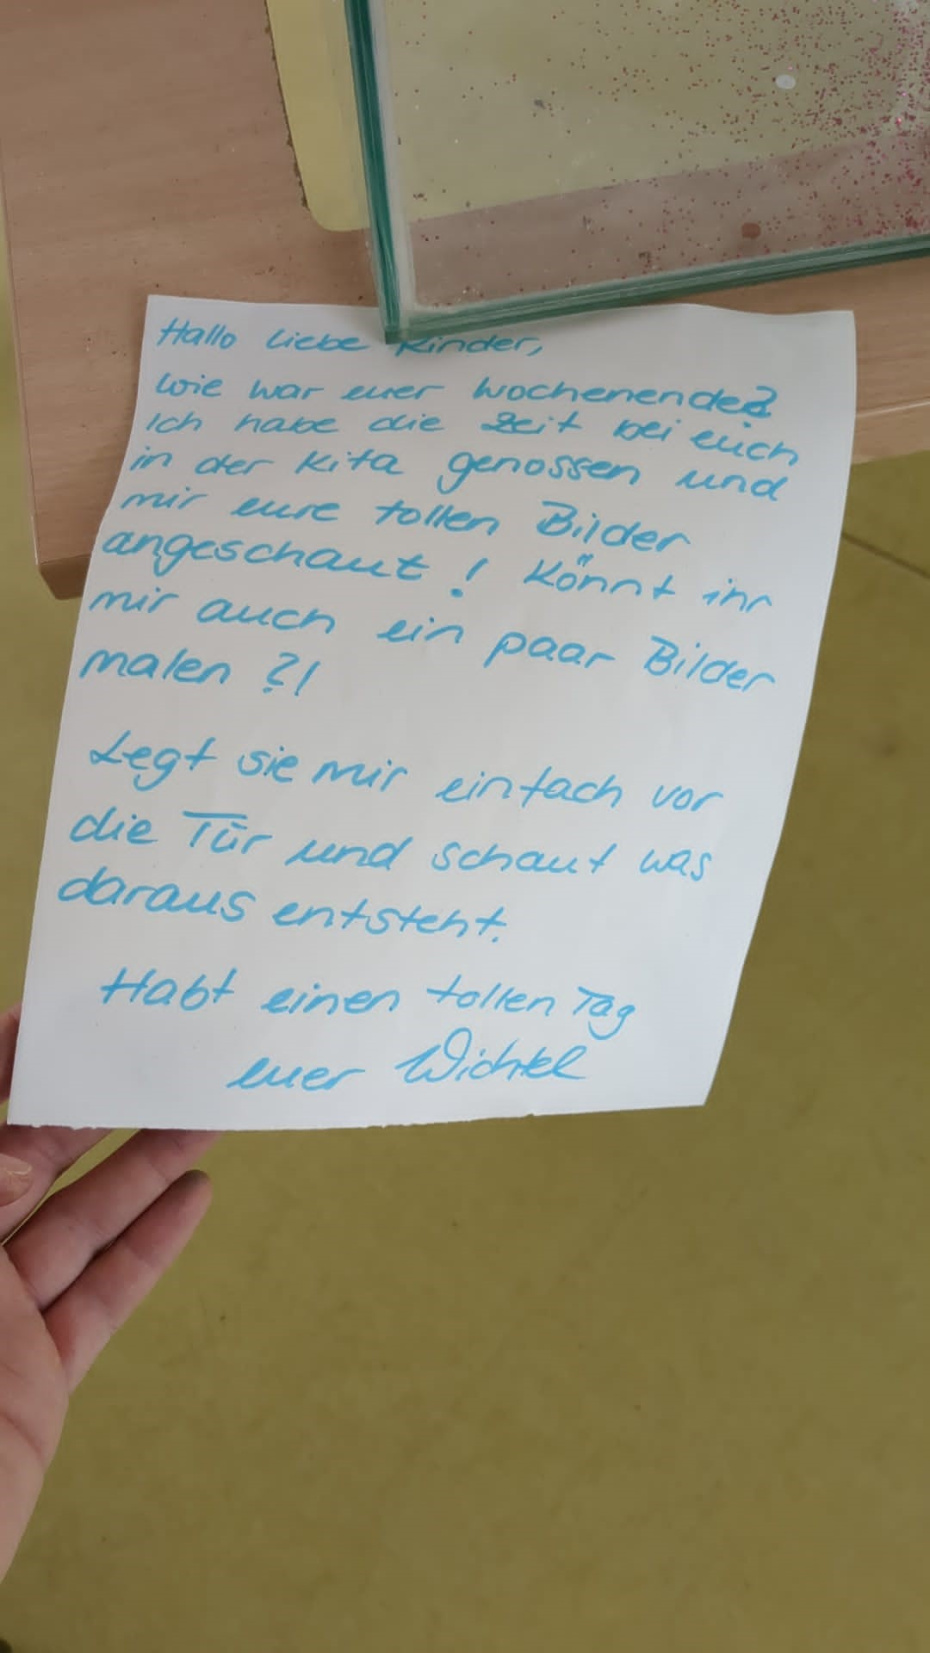 Hallo liebe Kinder,
wie war euer Wochenende?
Ich habe die Zeit bei euch
in der Kita genossen und
mir eure tollen Bilder
angeschaut! Könnt ihr
mir auch ein paar Bilder
malen?!
Legt sie mir einfach vor
die Tür und schaut was
daraus entsteht.
Habt einen tollen Tag
euer Wichtel